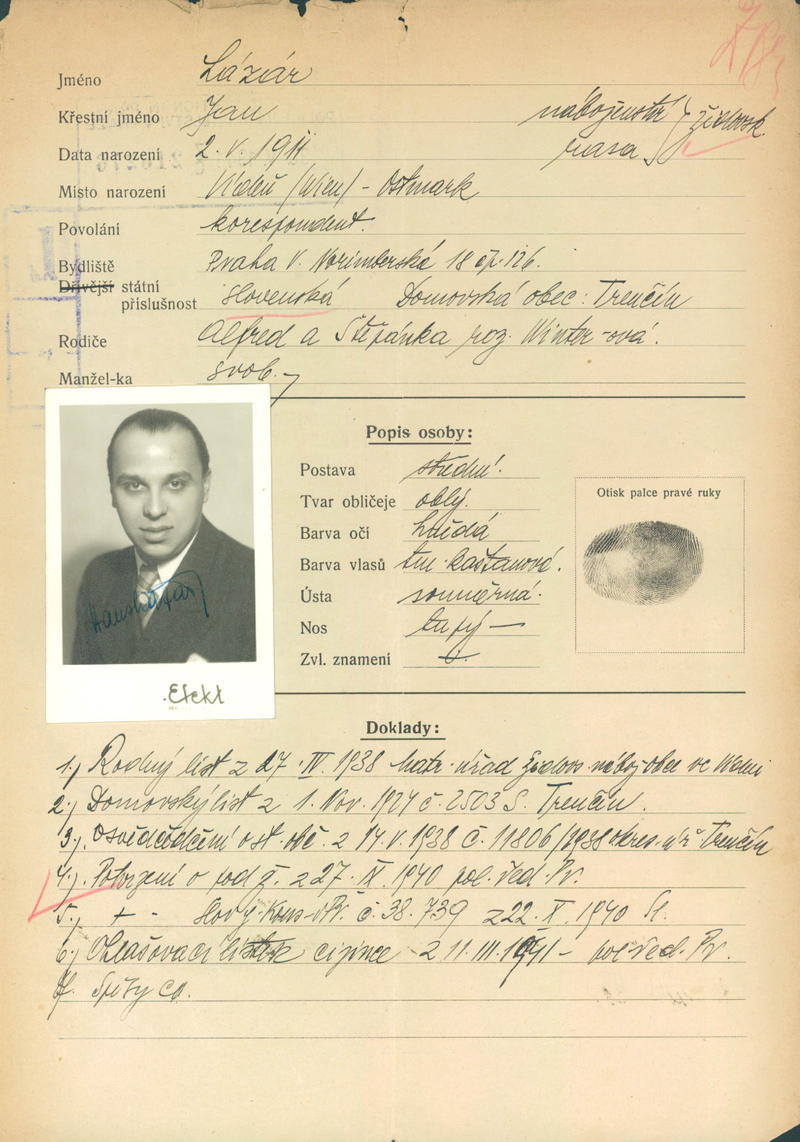 Jméno Lázár
Křestní jméno Jan náboženství židovsk.
Data narození 2. V. 1911 rasa
Místo narození Vídeň (Wien) - Ostmark
Povolání korespondent.
Bydliště Praha V. Norimberská 18 čp. 126.
Dřívější státní
příslušnost Slovenská Domovská obec: Trenčín
Rodiče Alfred a Štěpánka roz. Winter-ová.
Manžel-ka svob.
Popis osoby:
Postava střední.
Tvar obličeje oblý.
Barva očí hnědá
Barva vlasů tm. kaštanová.
Ústa souměrná.
Nos tupý —
Zvl. znamení
Otisk palce pravé ruky
Efekt
Doklady:
1.) Rodný list z 27. IV. 1938 Matr. úřad židov. nábož. obce ve Vídni
2.) Domovský list z 1. Nov. 1927 č. 2503 S. Trenčín.
3.) Osvědčení o st. obč. z 14. V. 1938 č. 11806/1938 okres. úř. Trenčín
4.) Potvrzení o pod. ž. z 27. IX. 1940 pol. řed. Pr.
5.) + - Slov. Kons. Pr. č. 38.739 z 22. X. 1940
6.) Ohlašovací lístek cizince z 11. III. 1941 - pol. řed. Pr.